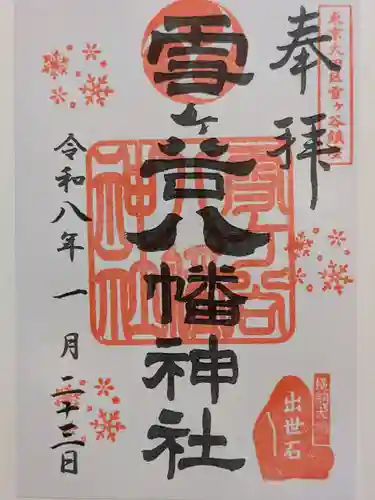 東京大田区雪ヶ谷鎮座
奉拝
雪ヶ谷八幡神社
雪ヶ谷八幡神社
令和八年一月二十三日
横綱大鵬
出世石